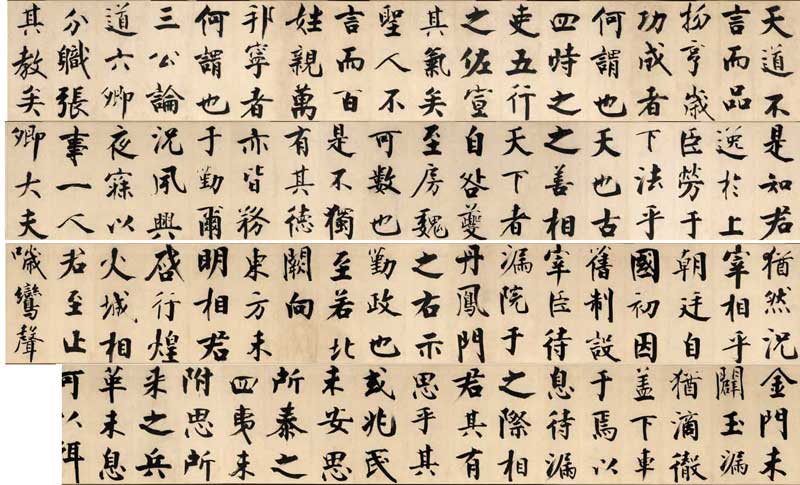 天道不
言而品
物亨歳
功成者
何謂也
四時之
吏五行
之佐宣
其氣矣
聖人不
言而百
姓親萬
邦寧者
何謂也
三公論
道六卿
分職張
其教矣
是知君
逸於上
臣勞于
下法乎
天也古
之善相
天下者
自咎夔
至房魏
可數也
是不獨
有其徳
亦皆務
于勤爾
況夙興
夜寐以
事一人
卿大夫
猶然況
宰相乎
朝廷自
國初因
舊制設
宰臣待
漏院于
丹鳳門
之右示
勤政也
至若北
闕向
東方未
明相君
啓行煌
火城相
君至止
噦鸞聲
金門未
闢玉漏
猶滴徹
盖下車
于焉以
息待漏
之際相
君其有
思乎其
或兆民
未安思
所泰之
四夷未
附思所
来之兵
革未息
何以弭